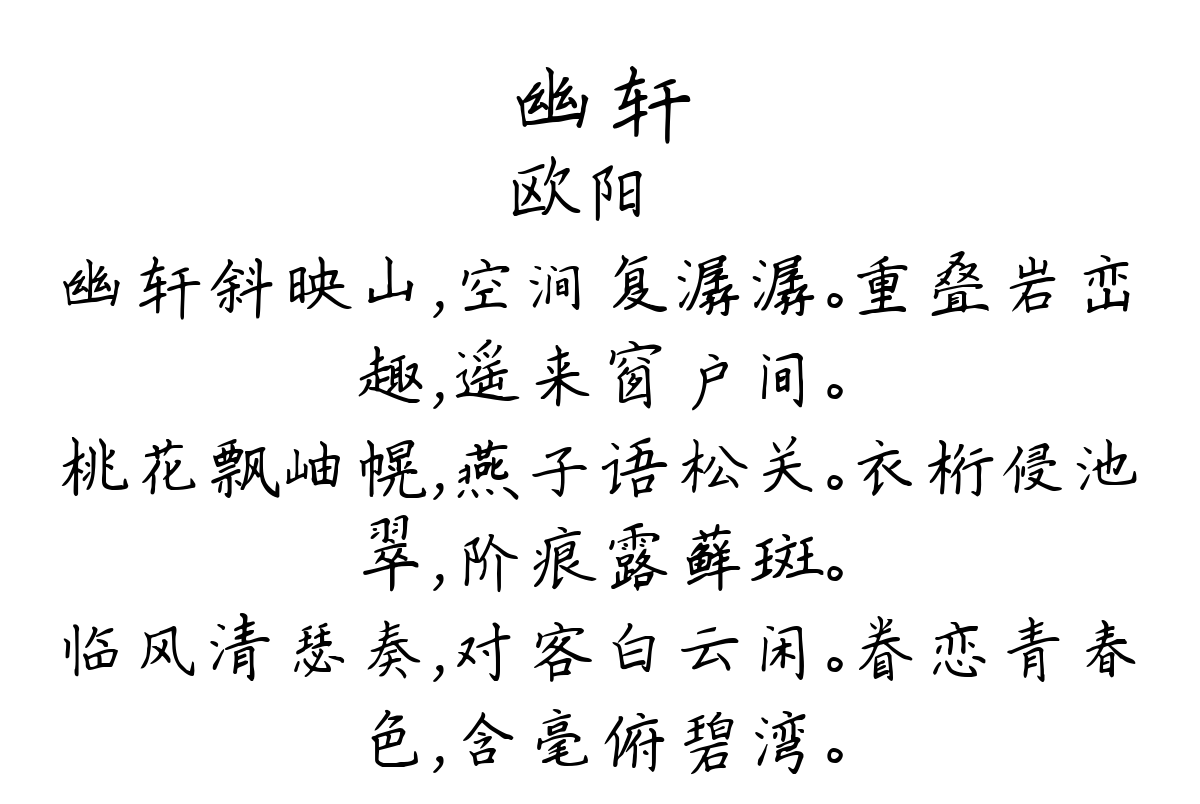 幽轩
欧阳
幽轩斜映山,空涧复潺潺。重叠岩峦
趣,遥来窗户间。
桃花飘岫幌,燕子语松关。衣桁侵池
翠,阶痕露藓斑。
临风清瑟奏,对客白云闲。眷恋青春
色,含毫俯碧湾。